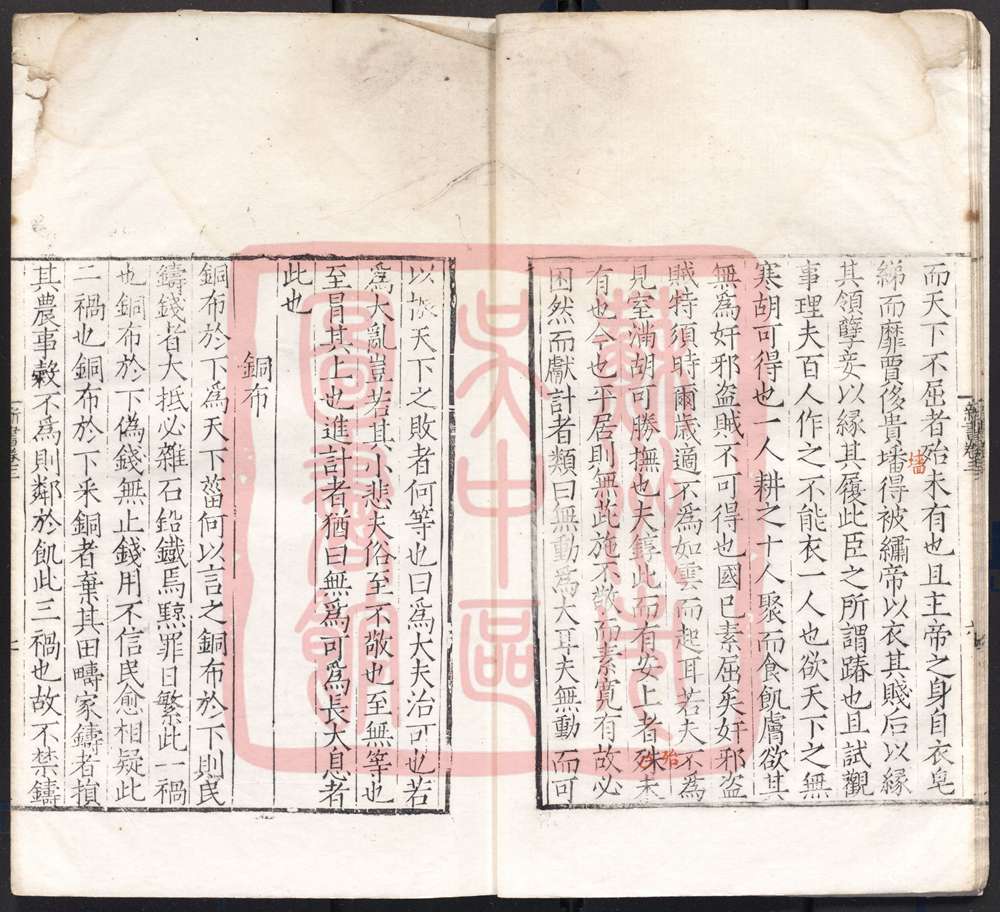 而天下不屈者殆未有也且主帝之身自衣皂
綈而靡賈侈貴墻得被繡帝以衣其賤后以緣
其領孽妾以緣其履此臣之所謂踳也且試觀
事理夫百人作之不能衣一人也欲天下之無
寒胡可得也一人耕之十人聚而食飢膚欲其
無為奸邪盜賊不可得也國已素屈矣奸邪盜
賊特須時爾歲適不為如雲而起耳若夫不為
見室滿胡可勝撫也夫錞此而有安上者殊未
有也今也平居則無茈施不敬而素寬有故必
困然而獻計者類曰無動為大耳夫無動而可
新書卷三
六
墙
殆
以振天下之敗者何等也曰為大夫治可也若
為大亂豈若其小悲夫俗至不敬也至無等也
至冒其上也進計者猶曰無為可為長大息者
此也
銅布
銅布於下為天下菑何以言之銅布於下則民
鑄錢者大抵必雜石鉛鐵焉黥罪日繁此一禍
也銅布於下偽錢無止錢用不信民愈相疑此
二禍也銅布於下采銅者棄其田疇家鑄者損
其農事穀不為則鄰於飢此三禍也故不禁鑄
新書卷三
蘇州市
吳中區
圖書館